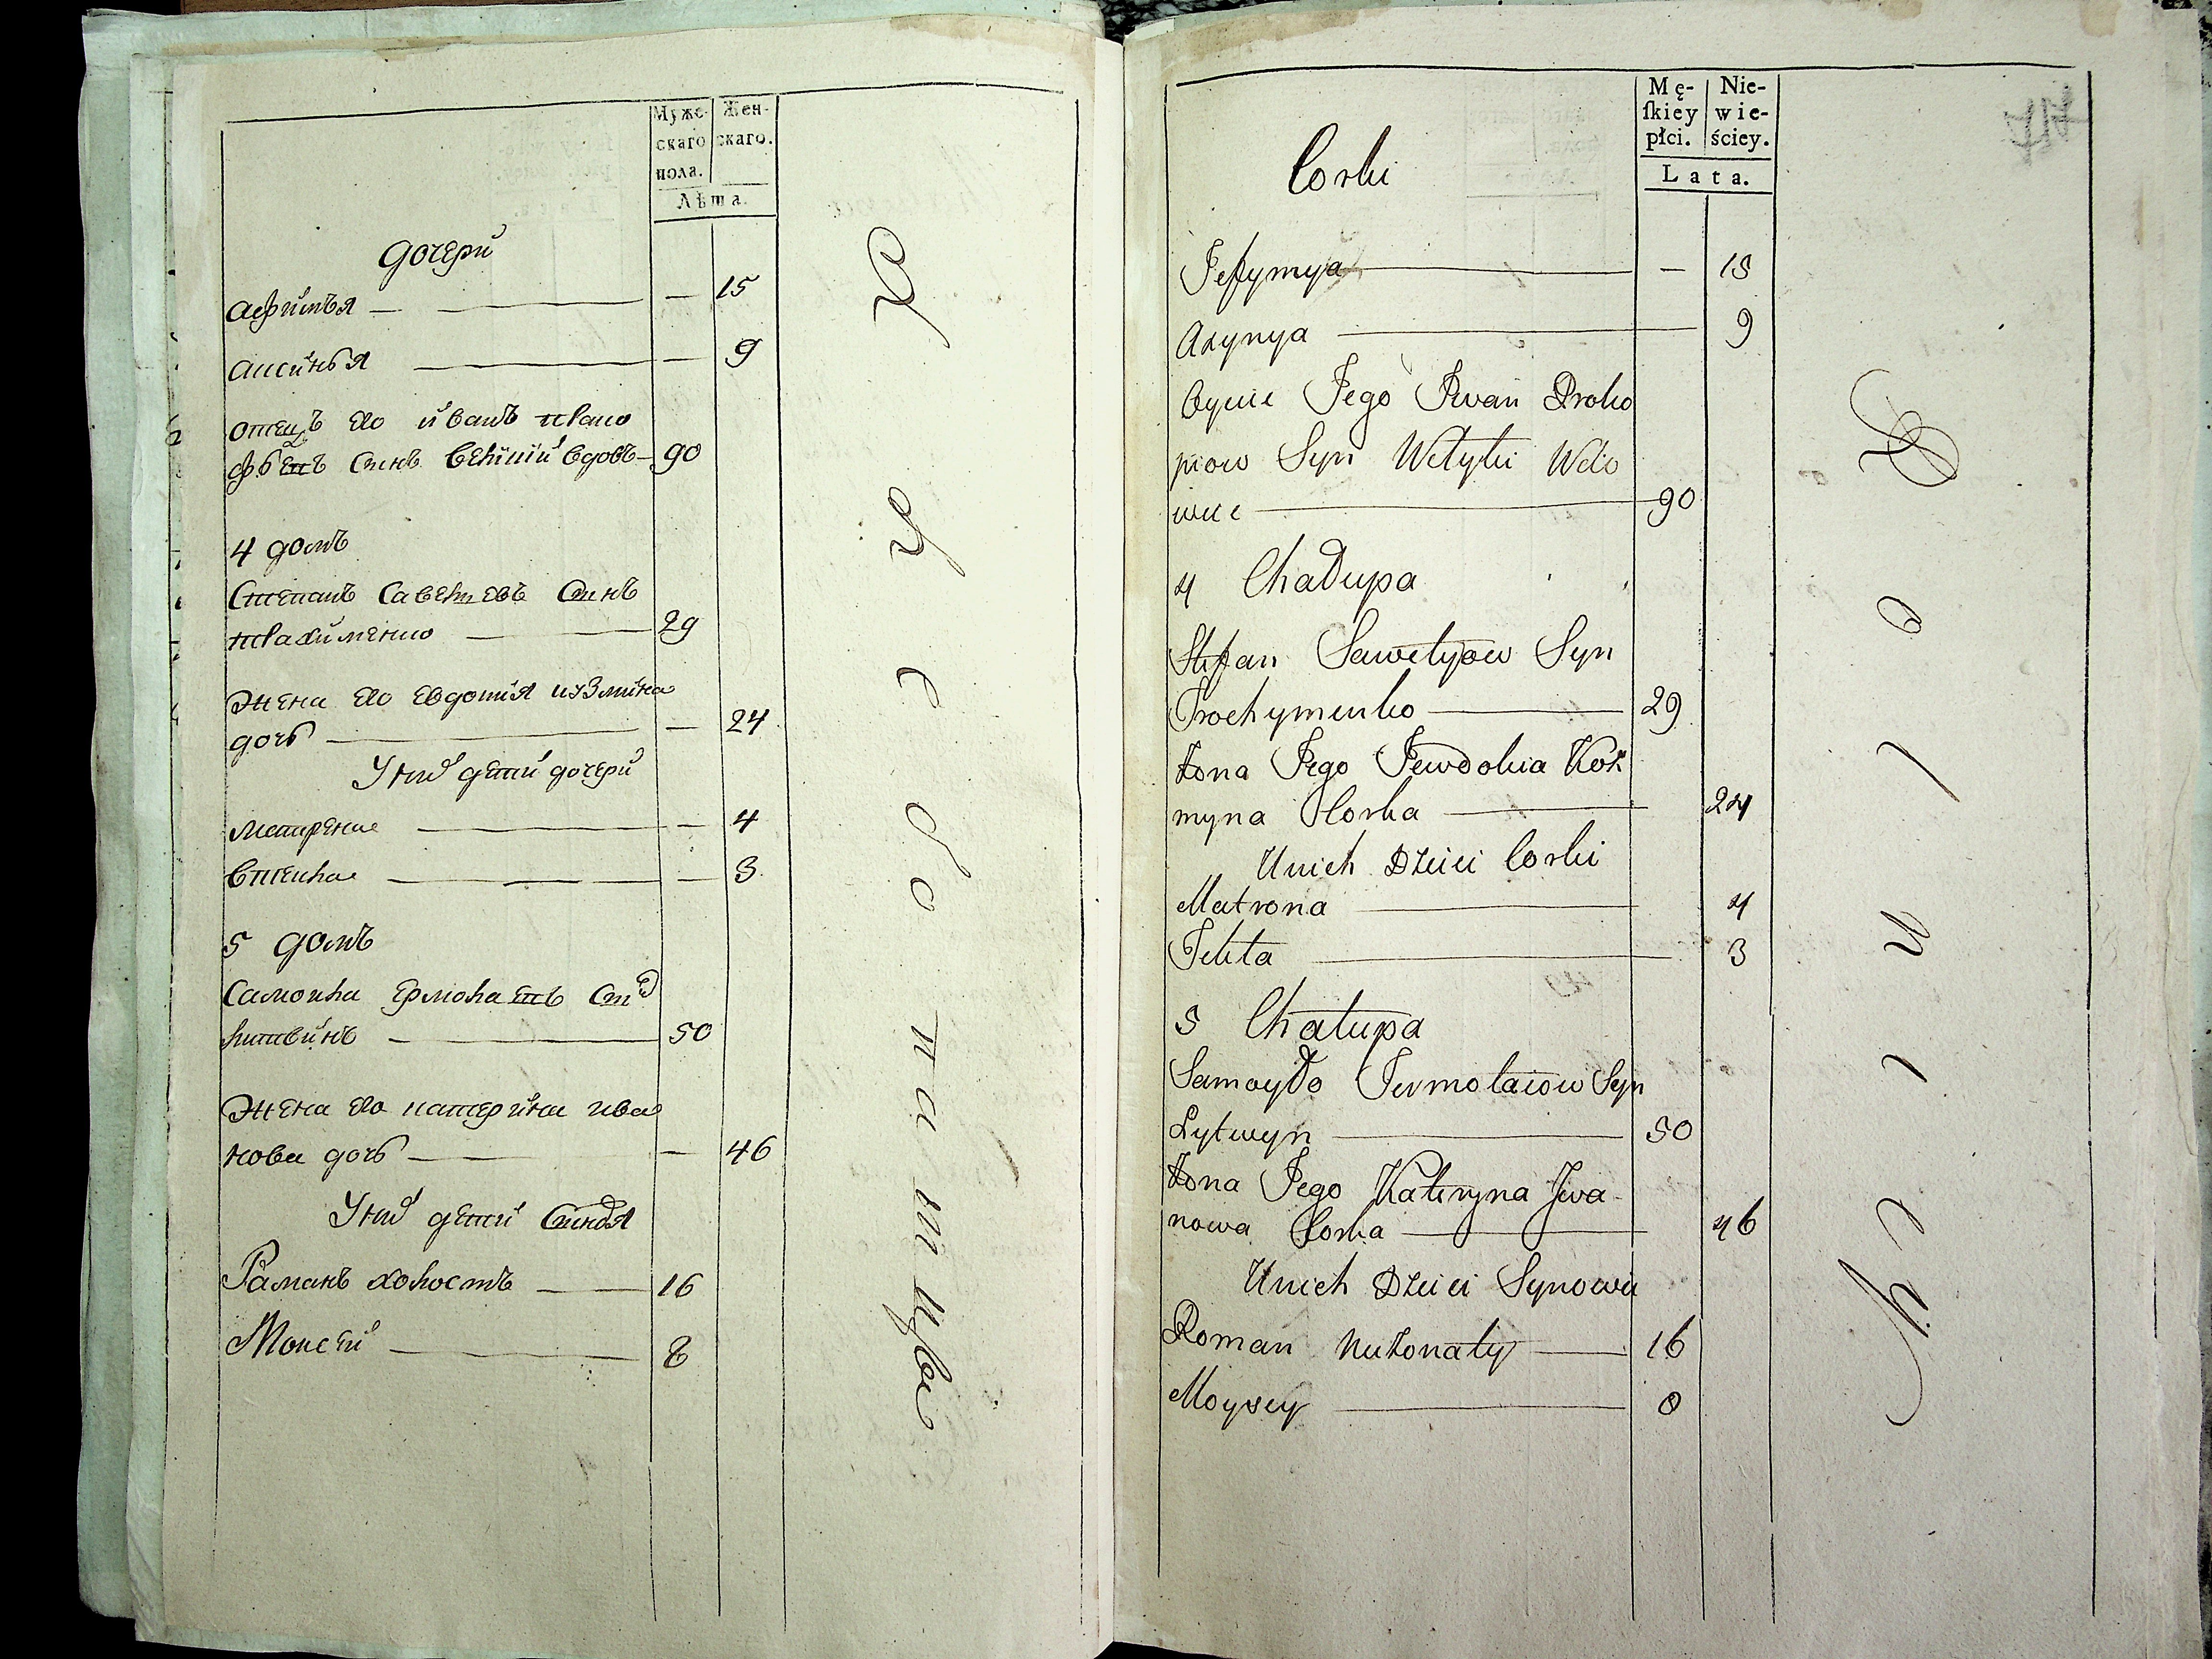 Муже-
скаго
пола.
Жен-
скаго.
Лѣта.
дочери
афимья — — 15
аксинья — — 9
отецъ его иванъ прако
фьевъ синъ великий вдовъ — 90
4 домъ
Степанъ Савелиевъ Синъ
прахименко — 29
Жена его евдокия кузмина
дочь — — 24
У них дети дочери
Матрена — — 4
5 домъ
Самоила Ермолаевъ Синъ
литвинъ — 50
Жена его катерина ива
нова дочь — — 46
У них дети Синовя
Раманъ холостъ — 16
Моисей — 8
Mę-
ſkiey
płci.
Nie-
wie-
ściey.
Lata.
Corki
Jefymya — — 15
Axynya — 9
Oycie Jego Iwan Proko
piow Syn Wełyki Wdo
wiec — 90
4 Chałupa
Stefan Sawełyiow Syn
Prochymenko — 29
Żona Jego Jewdokia Koź
myna Corka — 24
U nich Dzieci Corki
Matrona — 4
5 Chałupa
Samoyło Jermołaiow Syn
Lytwyn — 50
Żona Jego Kateryna Iwa-
nowa Corka — 46
U nich Dzieci Synowie
Roman Nieżonaty — 16
Moysey — 8